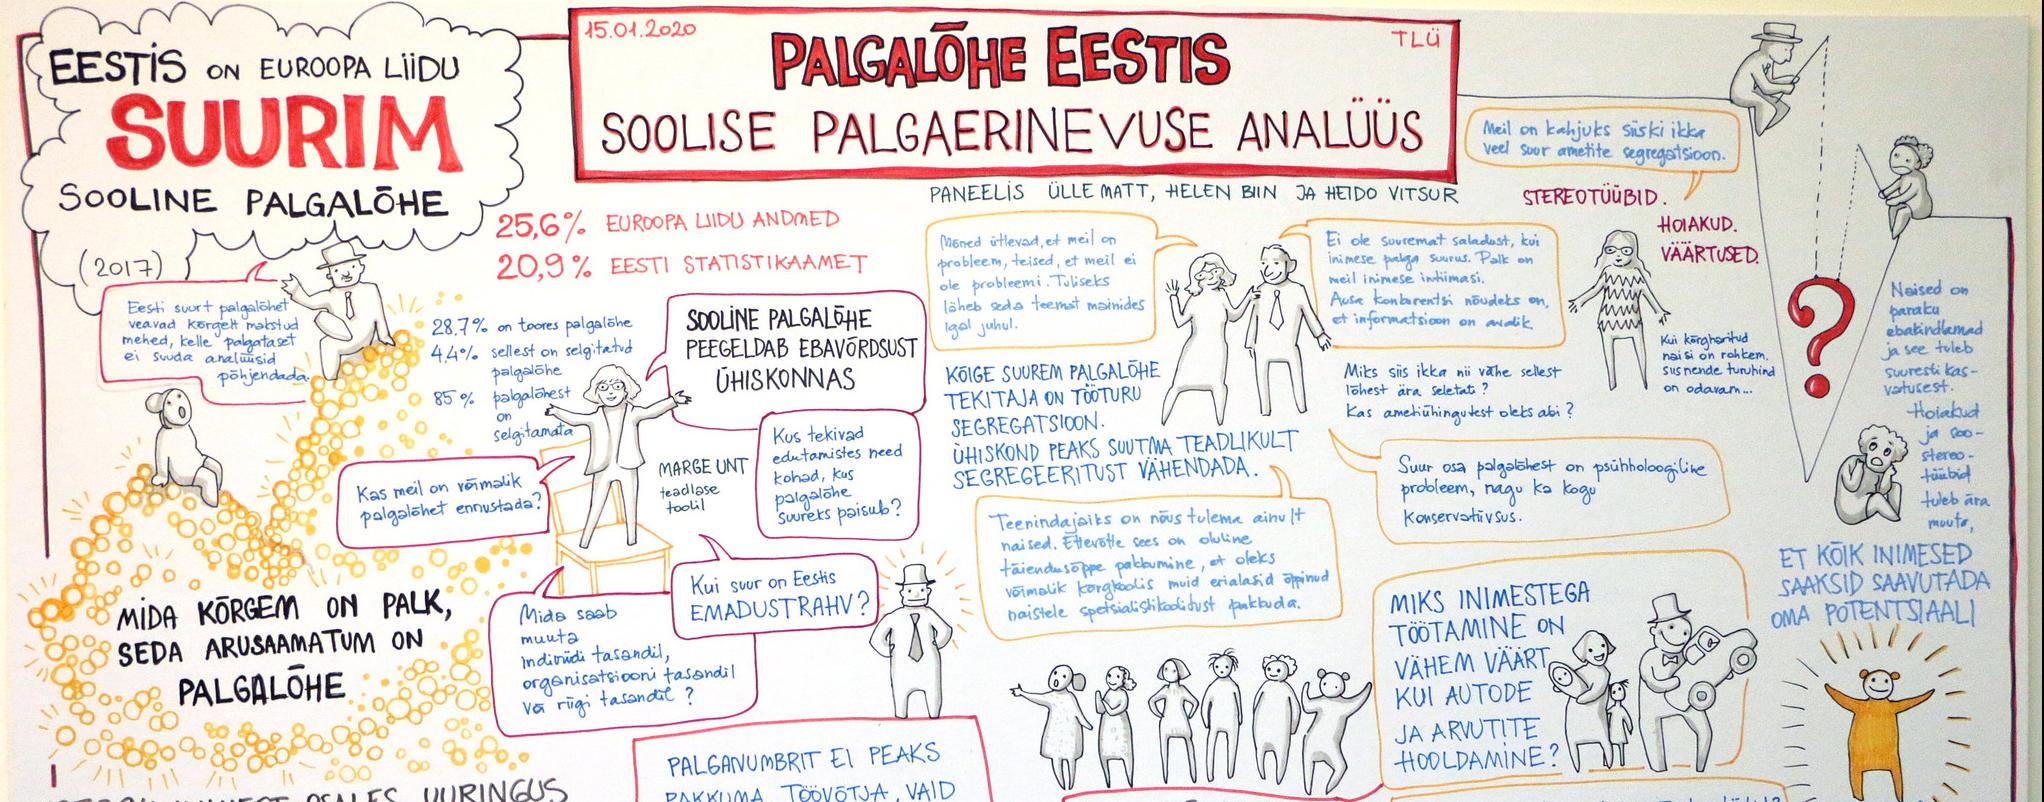 EESTIS ON EUROOPA LIIDU
SUURIM
SOOLINE PALGALÕHE
(2017)
15.01.2020
TLÜ
PALGALÕHE EESTIS
SOOLISE PALGAERINEVUSE ANALÜÜS
PANEELIS ÜLLE MATT, HELEN BIIN JA HEIDO VITSUR
25,6% EUROOPA LIIDU ANDMED
20,9% EESTI STATISTIKAAMET
Eesti suurt palgalõhet
veavad kõrgelt makstud
mehed, kelle palgataset
ei suuda analüüsid
põhjendada.
28,7% on toores palgalõhe
4,4% sellest on selgitatud
palgalõhe
85% palgalõhest
on
selgitamata
SOOLINE PALGALÕHE
PEEGELDAB EBAVÕRDSUST
ÜHISKONNAS
Kas meil on võimalik
palgalõhet ennustada?
MARGE UNT
teadlase
toolil
Kus tekivad
edutamistes need
kohad, kus
palgalõhe
suureks paisub?
Kui suur on Eestis
EMADUSTRAHV?
Mida saab
muuta
indiviidi tasandil,
organisatsiooni tasandil
või riigi tasandil?
MIDA KÕRGEM ON PALK,
SEDA ARUSAAMATUM ON
PALGALÕHE
UURINGUS
PALGANUMBRIT EI PEAKS
PAKKUMA TÖÖVÕTJA, VAID
Mõned ütlevad, et meil on
probleem, teised, et meil ei
ole probleemi. Tuliseks
läheb seda teemat mainides
igal juhul.
Ei ole suuremat saladust, kui
inimese palga suurus. Palk on
meil inimese intiimasi.
Aus konkurents nõudeks on,
et informatsioon on avalik.
KÕIGE SUUREM PALGALÕHE
TEKITAJA ON TÖÖTURU
SEGREGATSIOON.
ÜHISKOND PEAKS SUUTMA TEADLIKULT
SEGREGEERITUST VÄHENDADA.
Miks siis ikka nii vähe sellest
lõhest ära seletati?
Kas ametiühingutest oleks abi?
Teenindajaiks on nõus tulema ainult
naised. Ettevõtte sees on oluline
täiendusõppe pakkumine, et oleks
võimalik kõrgkoolis muid erialasid õppinud
naistele spetsialistikoolitust pakkuda.
Suur osa palgalõhest on psühholoogiline
probleem, nagu ka kogu
konservatiivsus.
Meil on kahjuks siiski ikka
veel suur ametite segregatsioon.
STEREOTÜÜBID.
HOIAKUD.
VÄÄRTUSED.
Kui kõrgharitud
naisi on rohkem,
siis nende turuhind
on odavam...
?
Naised on
paraku
ebakindlamad
ja see tuleb
suuresti kas-
vatusest.
Hoiakud
ja soo-
stereo-
tüübid
tuleb ära
muuta,
ET KÕIK INIMESED
SAAKSID SAAVUTADA
OMA POTENTSIAALI
MIKS INIMESTEGA
TÖÖTAMINE ON
VÄHEM VÄÄRT
KUI AUTODE
JA ARVUTITE
HOOLDAMINE?